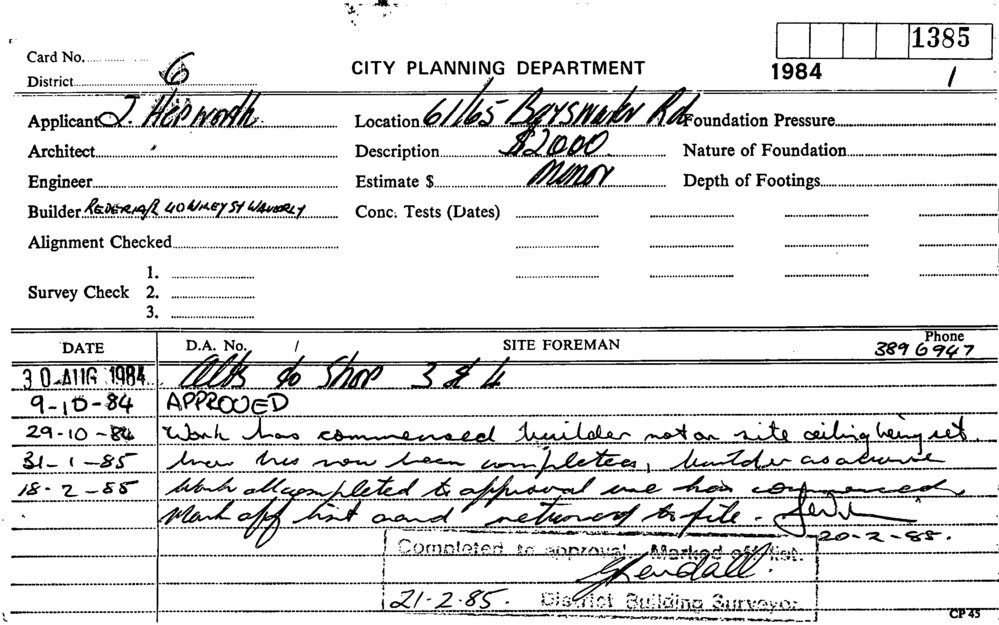 1385
Card No.
CITY PLANNING DEPARTMENT
1984 1
District 6
Applicant J. Hepworth
Location 61/65 Bayswater Rd
Foundation Pressure
Architect
Description $2000
Nature of Foundation
Engineer
Estimate $ Minor
Depth of Footings
Builder 40 WILEY ST WAVERLY
Conc. Tests (Dates)
Alignment Checked
Survey Check
1.
2.
3.
DATE D.A. No. / SITE FOREMAN Phone 389 6947
30 AUG 1984 Alts to Shop 3 & 4
9-10-84 APPROVED
29-10-84 Work has commenced builder not on site ceiling being set.
31-1-85 has now been completed, builder as above
18-2-85 Work all completed to approval use has commenced
Mark off list and returned to file.
20-2-85.
Completed to approval. Marked off list.
21-2-85. District Building Surveyor.
CP 45